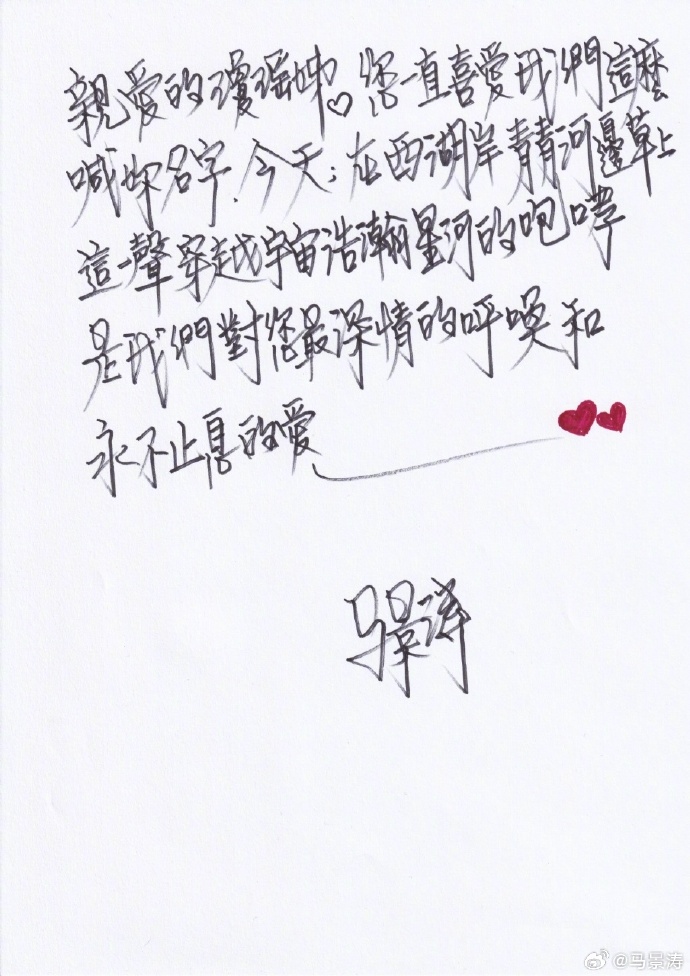 親愛的瓊瑤姊♡您一直喜愛我們這麼
喊妳名字.今天:在西湖岸青青河邊草上
這一聲穿越宇宙浩瀚星河的咆哮
是我們對您最深情的呼喚和
永不止息的愛
馬景涛
@马景涛